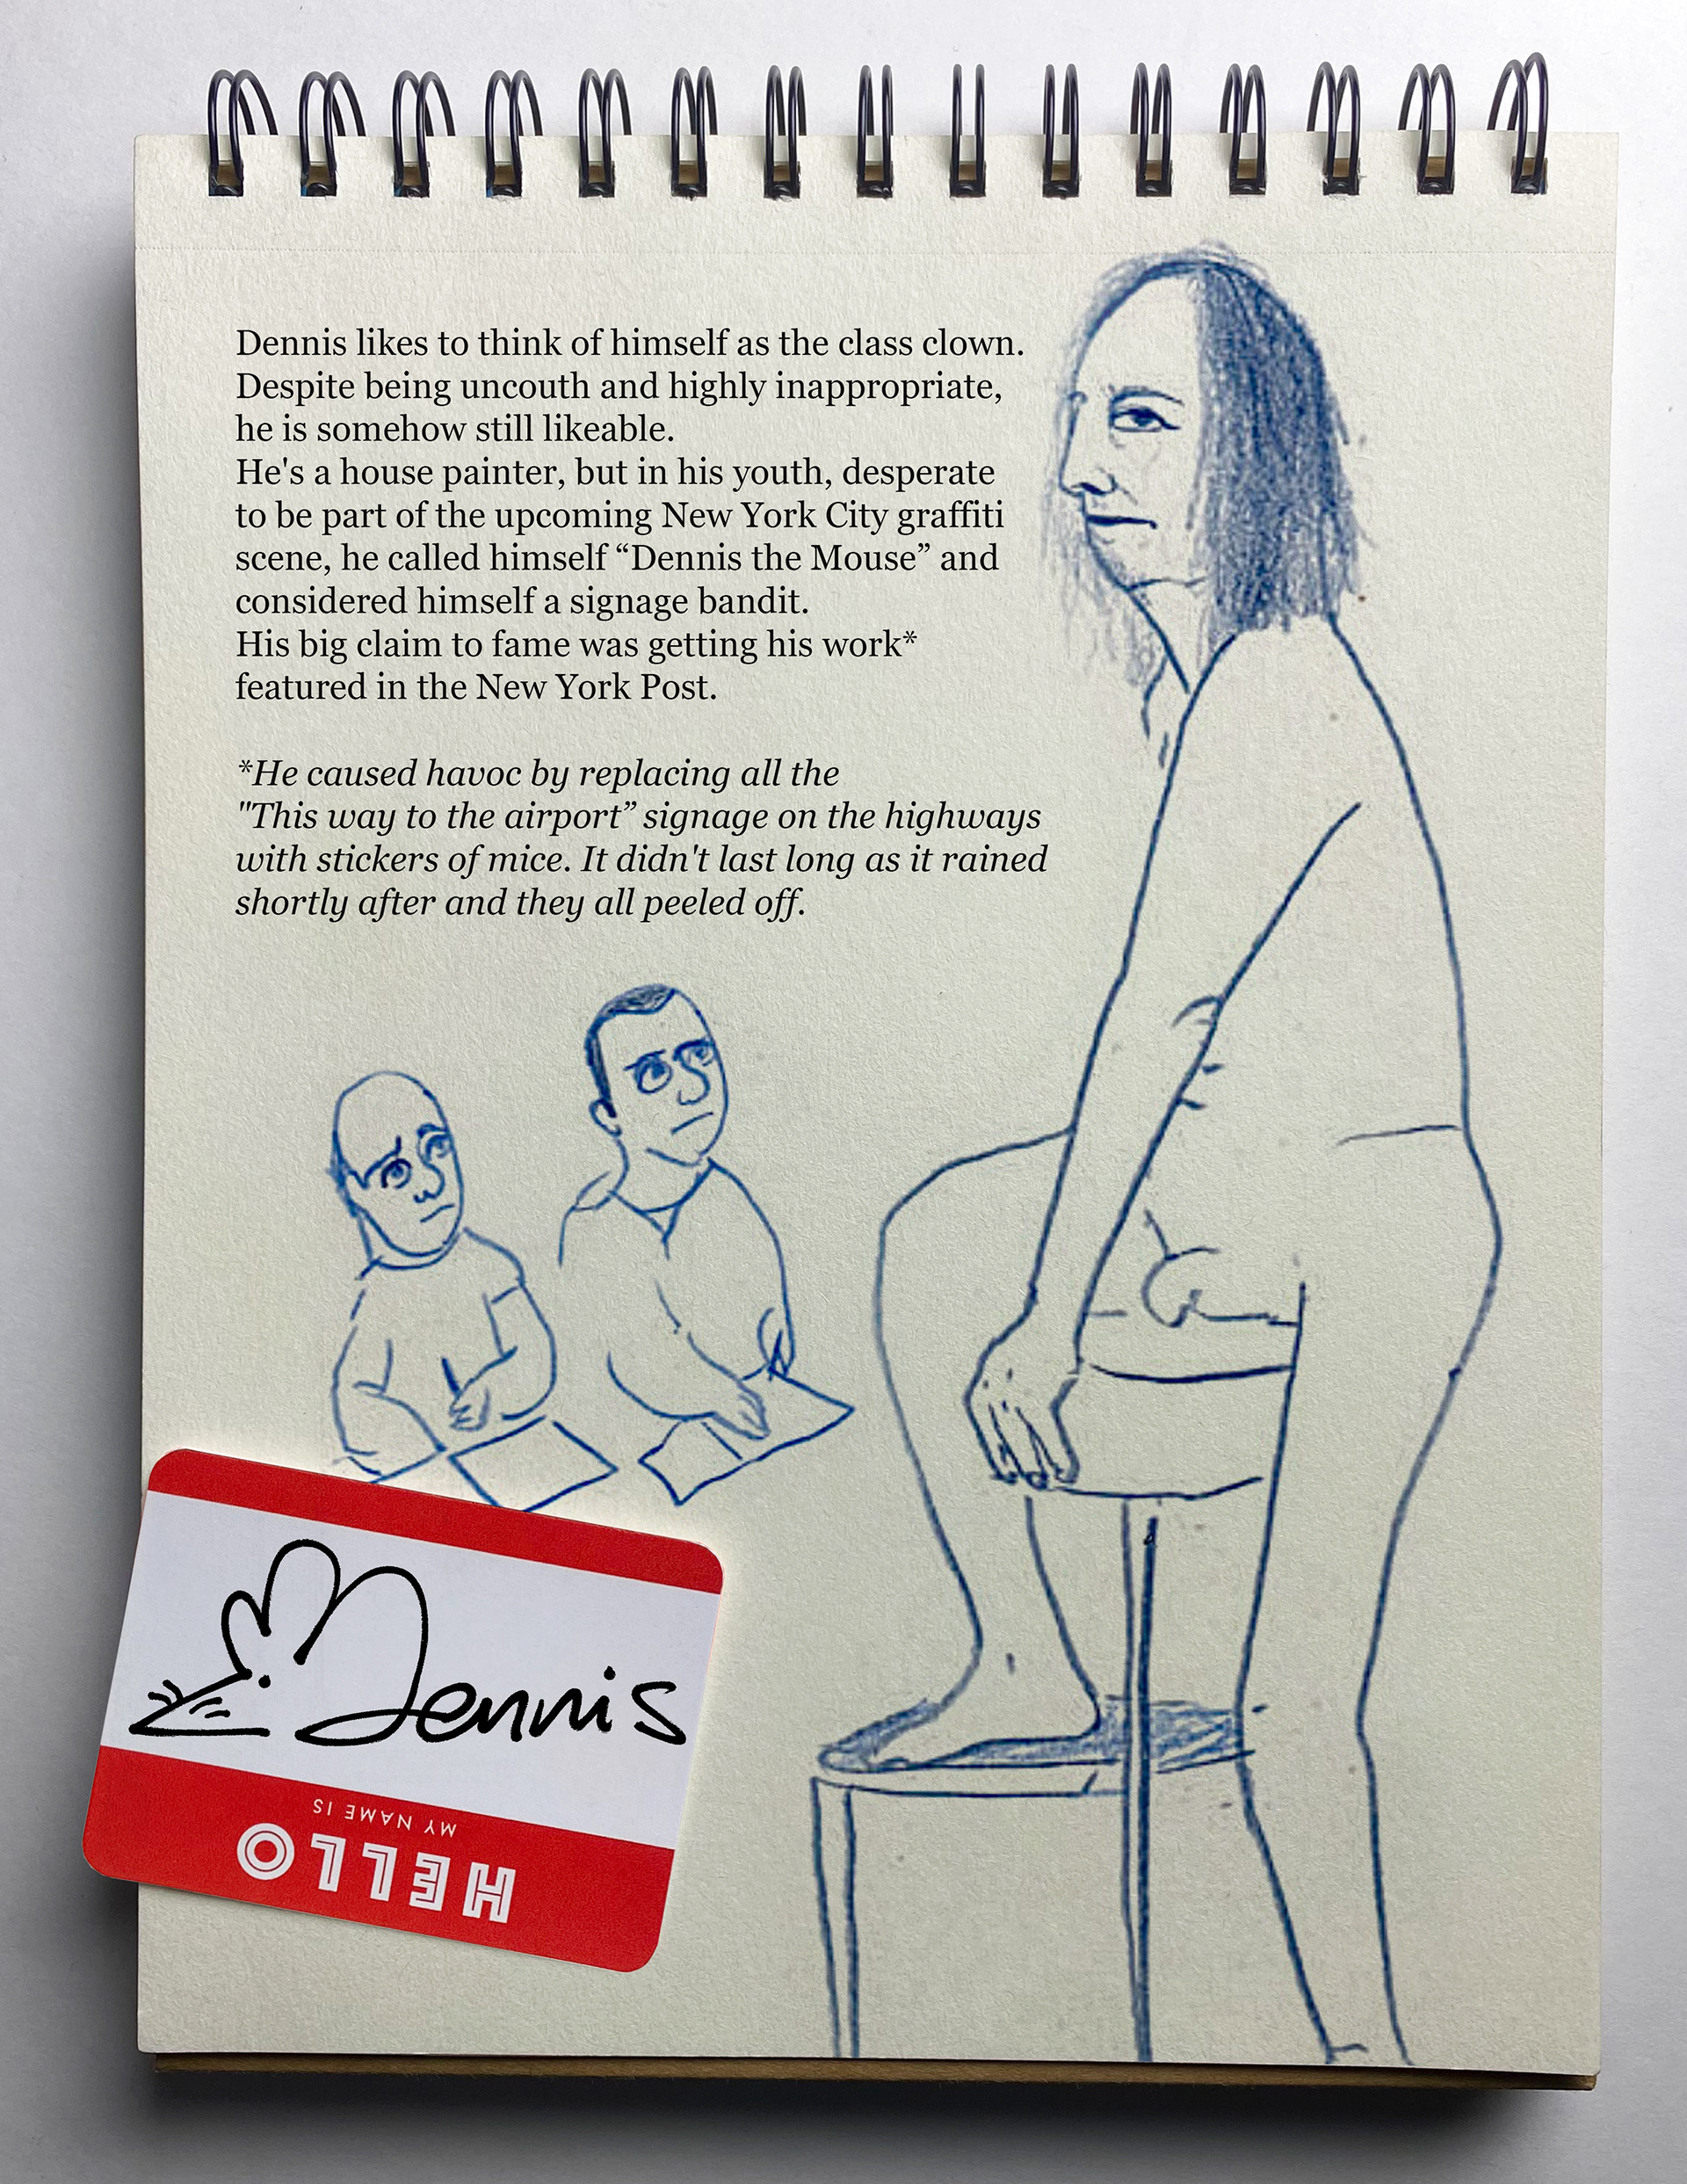 Dennis likes to think of himself as the class clown.
Despite being uncouth and highly inappropriate,
he is somehow still likeable.
He's a house painter, but in his youth, desperate
to be part of the upcoming New York City graffiti
scene, he called himself “Dennis the Mouse” and
considered himself a signage bandit.
His big claim to fame was getting his work*
featured in the New York Post.
*He caused havoc by replacing all the
"This way to the airport” signage on the highways
with stickers of mice. It didn't last long as it rained
shortly after and they all peeled off.
Dennis
HELLO
MY NAME IS